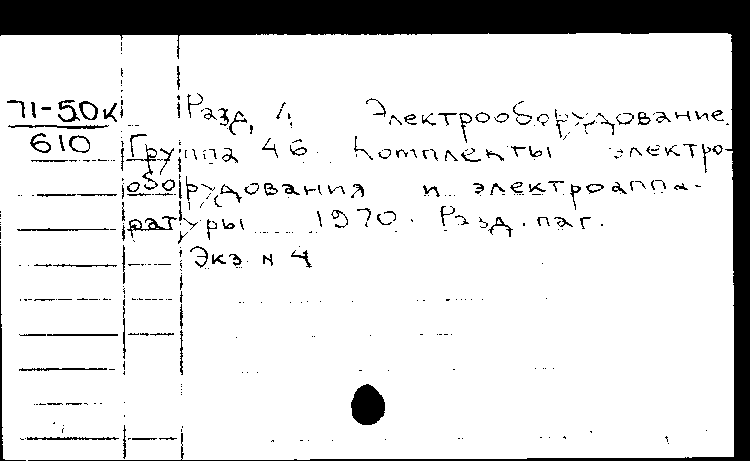 71-50к
610
Разд. 4. Электрооборудование
Группа 46. Комплекты электро-
оборудования и электроаппа-
ратуры 1970. Разд. паг.
Экз. N 4